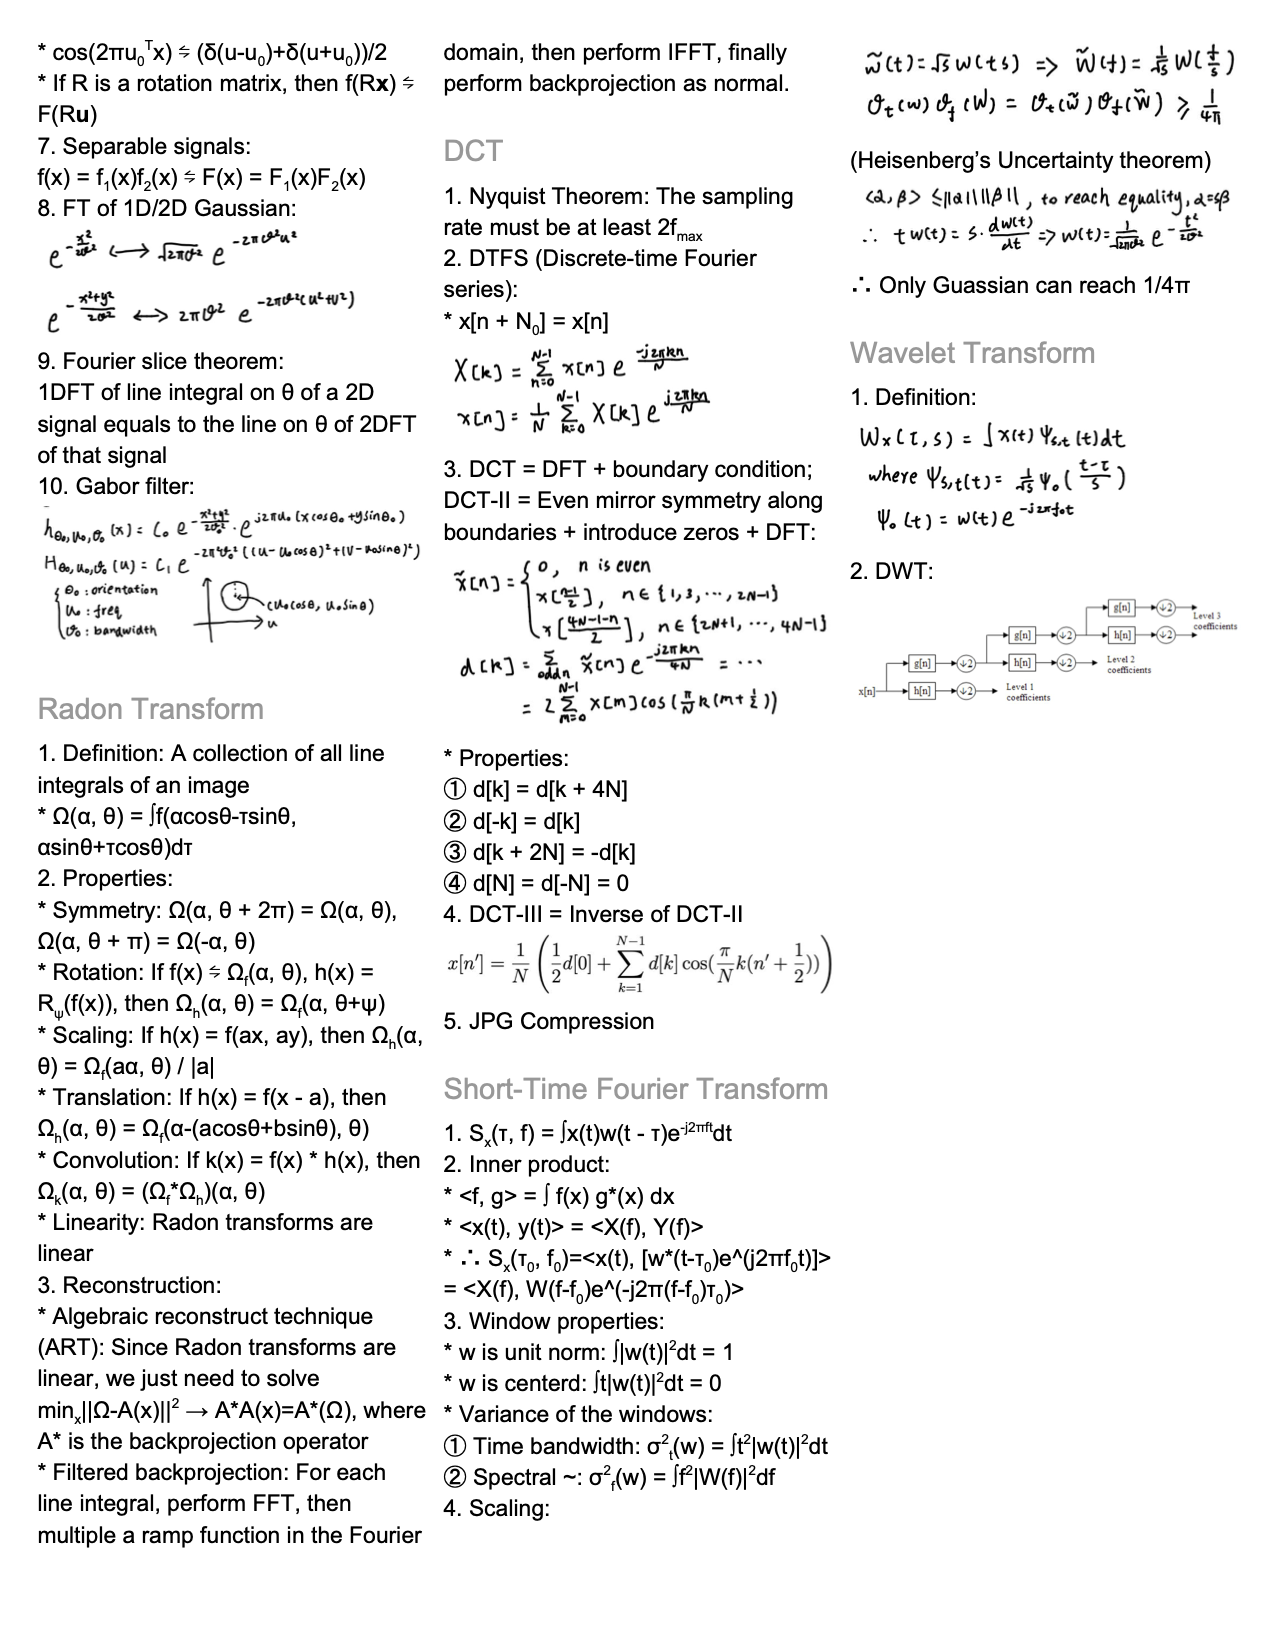 * cos(2πu₀ᵀx) ⇋ (δ(u-u₀)+δ(u+u₀))/2
* If R is a rotation matrix, then f(Rx) ⇋
F(Ru)
7. Separable signals:
f(x) = f₁(x)f₂(x) ⇋ F(x) = F₁(x)F₂(x)
8. FT of 1D/2D Gaussian:
e^(-x²/2σ²) ⟷ √(2πσ²) e^(-2πσ²u²)
e^(-(x²+y²)/2σ²) ⟷ 2πσ² e^(-2πσ²(u²+v²))
9. Fourier slice theorem:
1DFT of line integral on θ of a 2D
signal equals to the line on θ of 2DFT
of that signal
10. Gabor filter:
h_θ₀,u₀,σ₀ (x) = C₀ e^(-(x²+y²)/2σ₀²) · e^(j2πu₀(xcosθ₀+ysinθ₀))
H_θ₀,u₀,σ₀ (u) = C₁ e^(-2π²σ₀²((u-u₀cosθ)²+(v-u₀sinθ)²))
{ θ₀ : orientation
u₀ : freq
σ₀ : bandwidth
(u₀cosθ, u₀sinθ)
u
Radon Transform
1. Definition: A collection of all line
integrals of an image
* Ω(α, θ) = ∫f(αcosθ-τsinθ,
αsinθ+τcosθ)dτ
2. Properties:
* Symmetry: Ω(α, θ + 2π) = Ω(α, θ),
Ω(α, θ + π) = Ω(-α, θ)
* Rotation: If f(x) ⇋ Ω_f(α, θ), h(x) =
R_ψ(f(x)), then Ω_h(α, θ) = Ω_f(α, θ+ψ)
* Scaling: If h(x) = f(ax, ay), then Ω_h(α,
θ) = Ω_f(aα, θ) / |a|
* Translation: If h(x) = f(x - a), then
Ω_h(α, θ) = Ω_f(α-(acosθ+bsinθ), θ)
* Convolution: If k(x) = f(x) * h(x), then
Ω_k(α, θ) = (Ω_f*Ω_h)(α, θ)
* Linearity: Radon transforms are
linear
3. Reconstruction:
* Algebraic reconstruct technique
(ART): Since Radon transforms are
linear, we just need to solve
min_x||Ω-A(x)||² → A*A(x)=A*(Ω), where
A* is the backprojection operator
* Filtered backprojection: For each
line integral, perform FFT, then
multiple a ramp function in the Fourier
domain, then perform IFFT, finally
perform backprojection as normal.
DCT
1. Nyquist Theorem: The sampling
rate must be at least 2f_max
2. DTFS (Discrete-time Fourier
series):
* x[n + N₀] = x[n]
X[k] = Σ_{n=0}^{N-1} x[n] e^(-j2πkn/N)
x[n] = 1/N Σ_{k=0}^{N-1} X[k] e^(j2πkn/N)
3. DCT = DFT + boundary condition;
DCT-II = Even mirror symmetry along
boundaries + introduce zeros + DFT:
x̃[n] = { 0, n is even
x[(n-1)/2], n∈{1,3,···,2N-1}
x[(4N-1-n)/2], n∈{2N+1, ···, 4N-1}
d[k] = Σ_{odd n} x̃[n] e^(-j2πkn/4N) = ···
= 2 Σ_{m=0}^{N-1} x[m]cos(π/N k(m+1/2))
* Properties:
① d[k] = d[k + 4N]
② d[-k] = d[k]
③ d[k + 2N] = -d[k]
④ d[N] = d[-N] = 0
4. DCT-III = Inverse of DCT-II
x[n′] = 1/N (1/2 d[0] + Σ_{k=1}^{N−1} d[k] cos(π/N k(n′ + 1/2)))
5. JPG Compression
Short-Time Fourier Transform
1. Sₓ(τ, f) = ∫x(t)w(t - τ)e^(-j2πft)dt
2. Inner product:
* <f, g> = ∫ f(x) g*(x) dx
* <x(t), y(t)> = <X(f), Y(f)>
* ∴ Sₓ(τ₀, f₀)=<x(t), [w*(t-τ₀)e^(j2πf₀t)]>
= <X(f), W(f-f₀)e^(-j2π(f-f₀)τ₀)>
3. Window properties:
* w is unit norm: ∫|w(t)|²dt = 1
* w is centerd: ∫t|w(t)|²dt = 0
* Variance of the windows:
① Time bandwidth: σ²_t(w) = ∫t²|w(t)|²dt
② Spectral ~: σ²_f(w) = ∫f²|W(f)|²df
4. Scaling:
w̃(t) = √s w(ts) => W̃(f) = 1/√s W(f/s)
σ_t(w) σ_f(W) = σ_t(w̃) σ_f(W̃) ⩾ 1/4π
(Heisenberg's Uncertainty theorem)
<α, β> ≤ ||α|| ||β||, to reach equality, α=sβ
∴ t w(t) = s · dw(t)/dt => w(t) = 1/√(2πσ²) e^(-t²/2σ²)
∴ Only Guassian can reach 1/4π
Wavelet Transform
1. Definition:
Wₓ(τ, s) = ∫x(t) Ψ_s,τ(t)dt
where Ψ_s,τ(t) = 1/√s Ψ₀((t-τ)/s)
Ψ₀(t) = w(t)e^(-j2πf₀t)
2. DWT:
g[n] ↓2 Level 3
coefficients
g[n] ↓2 h[n] ↓2
g[n] ↓2 h[n] ↓2 Level 2
coefficients
x[n] h[n] ↓2 Level 1
coefficients